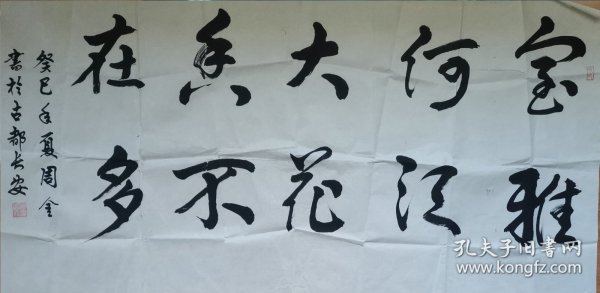 室雅
何须
大花
香不
在多
癸巳年夏周全
書於古都长安
孔夫子旧书网
www.kongfz.com